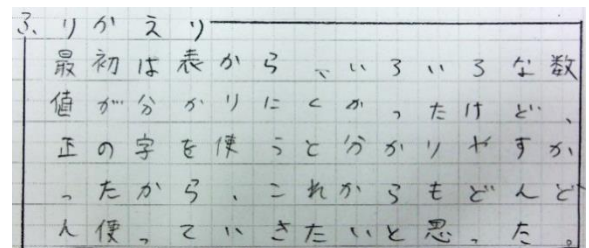 ふりかえり
最初は表から、いろいろな数
値が分かりにくかったけど、
正の字を使うと分かりやすか
ったから、これからもどんど
ん使っていきたいと思った。